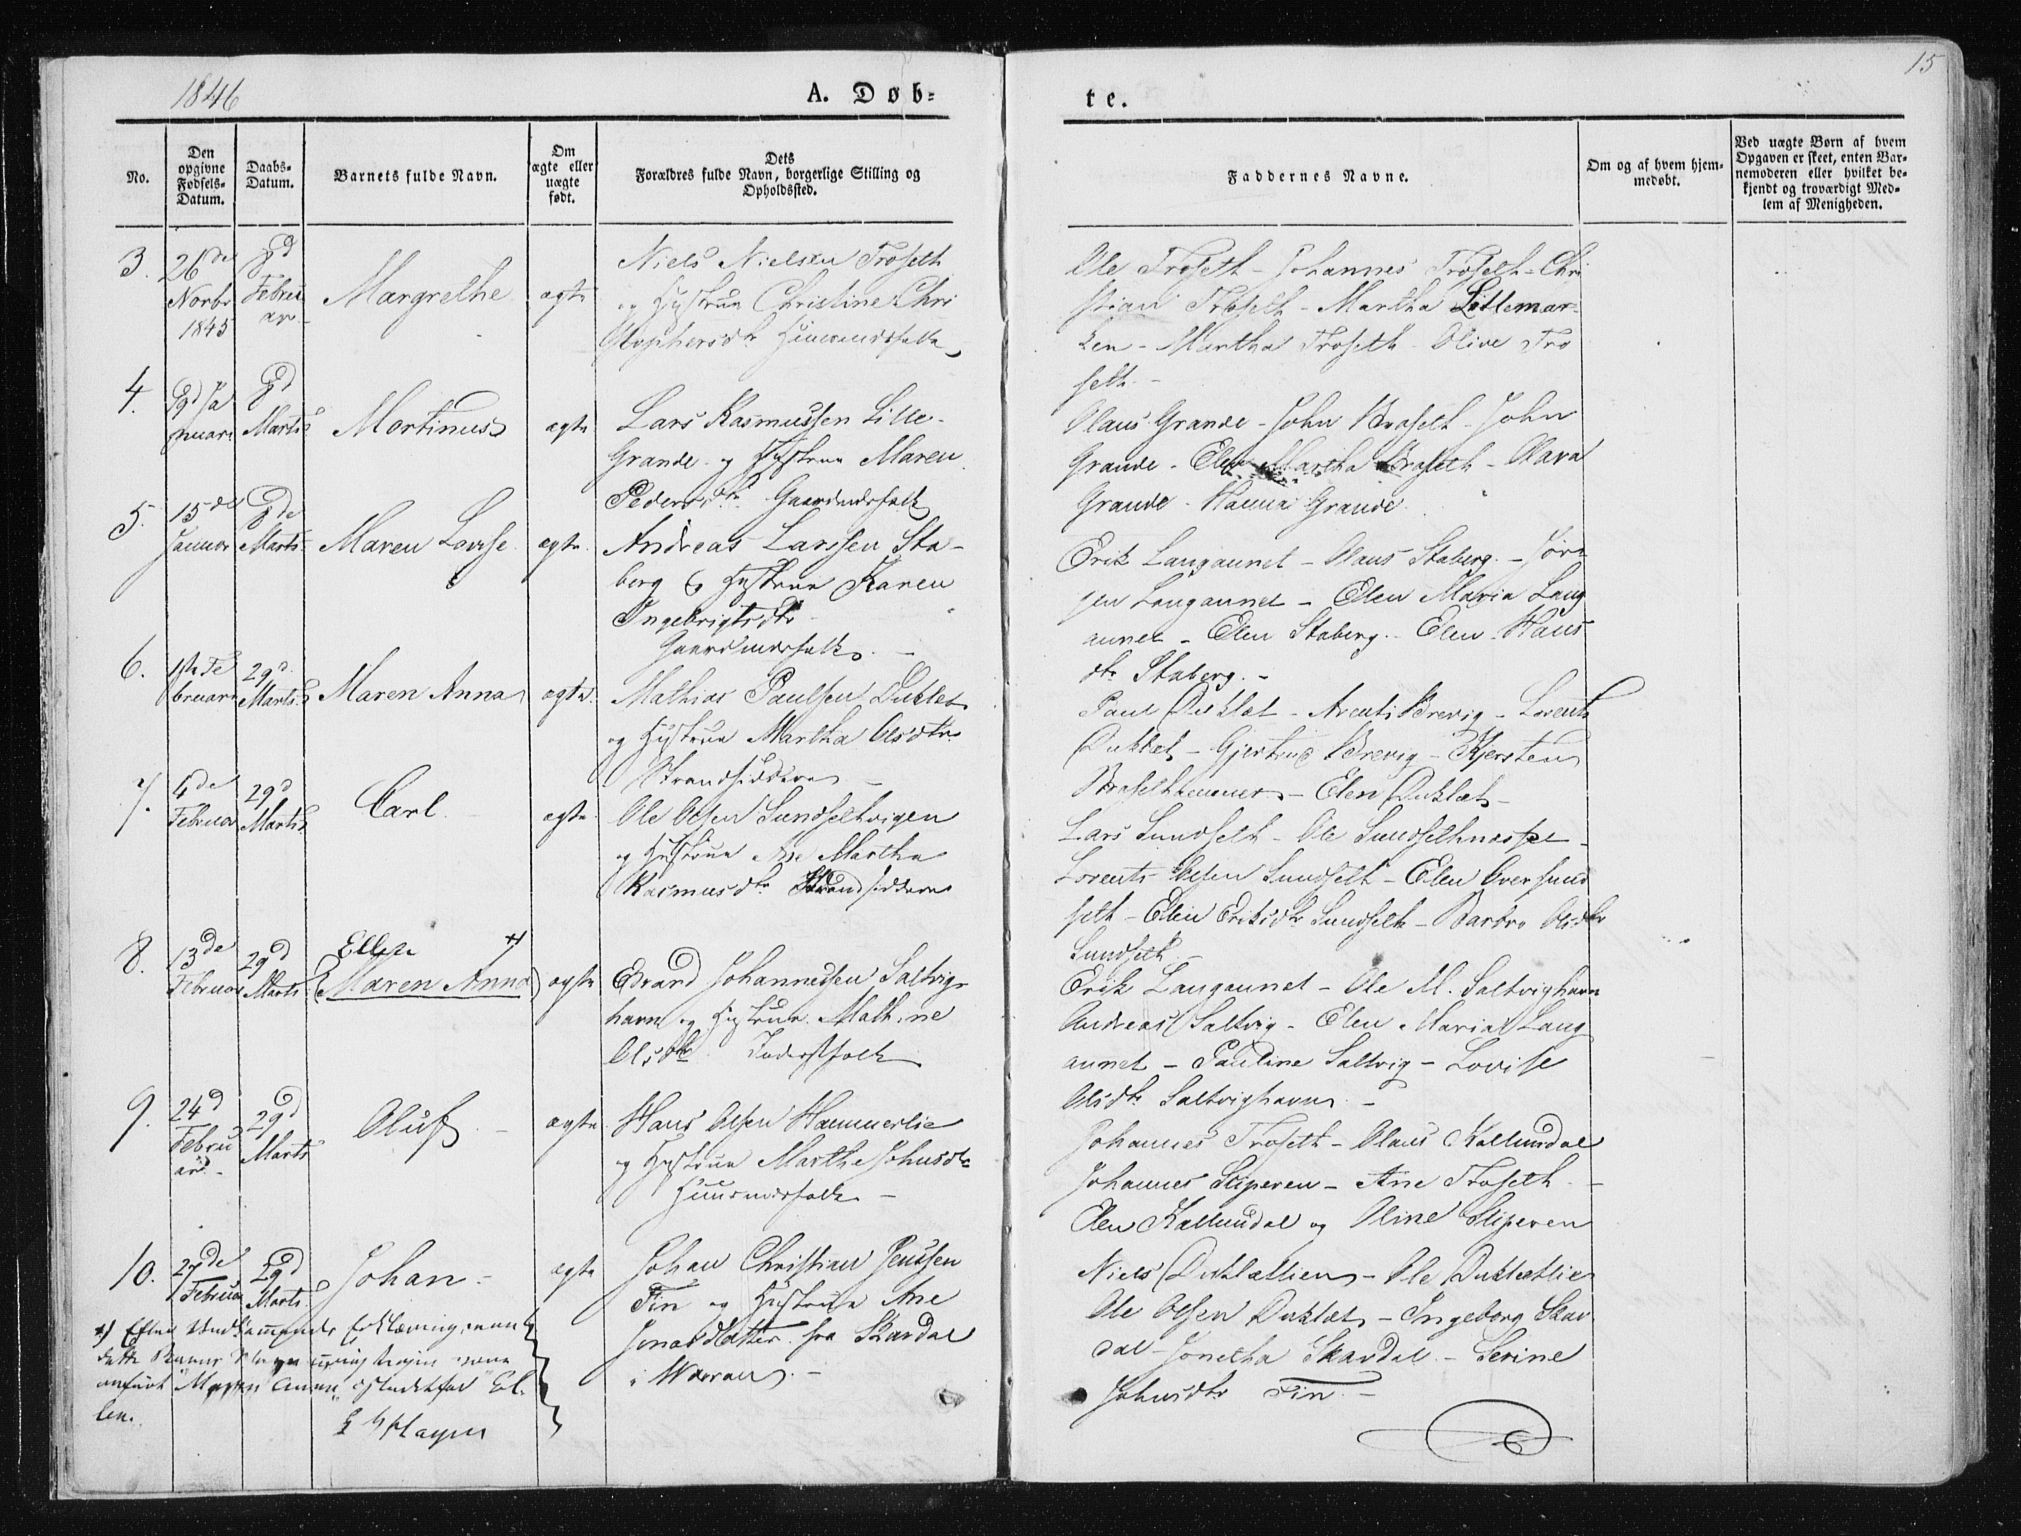 1846
A. Døb=
te.
15
No.
Den opgivne Fødsels-Datum.
Daabs-Datum.
Barnets fulde Navn.
Om ægte eller uægte født.
Dets Forældres fulde Navn, borgerlige Stilling og Opholdssted.
Faddernes Navne.
Om og af hvem hjem-
medøbt.
Ved uægte Børn af hvem
Opgaven er skeet, enten Bar-
nemoderen eller hvilket be-
kjendt og troværdigt Med-
lem af Menigheden.
3. 26de Novbr 1845 8d Februar Margrethe ægte
Niels Nielsen Troseth
og Hustrue Christine Chri
stophersdtr Huusmandsfolk
Ole Troseth - Johannes Troseth - Chri
stian Troseth - Martha Littlemar=
ken - Martha Troseth - Olive Tro
seth. -
4. 9d Januar 8d Marts Martinus ægte
Lars Rasmussen Lille-
Grande og Hustrue Maren
Pedersdtr. Gaardmdsfolk
Olaus Grande - John Braseth - John
Grande - Elen Martha Braseth - Olava
Grande - Hanna Grande.
5. 15de Januar 8de Marts Maren Lovise ægte.
Andreas Larssen Sta-
berg & Hustrue Karen
Ingebrigtsdtr
Gaardmandsfolk. -
Erik Langaunet - Olaus Staberg. - Jør
gen Langaunet - Elen Maria Lang
aunet - Elen Staberg. - Elen Hans
dtr Staberg. -
6. 1ste Februar 29d Marts Maren Anna ægte.
Mathias Paulsen Duklet
og Hustrue Martha Olsdtr
Strandsiddere -
Paul Duklet - Arent Brevig - Lorents
Duklet - Gjertrud Brevig - Kjersten
Braselhammer - Elen Duklæt -
7. 4de Februar 29d Marts Carl. ægte.
Ole Olsen Sundsethvigen
og Hustrue Ane Martha
Rasmusdtr Strandsiddere
Lars Sundseth - Ole Sundsethnesset -
Lorents Olsen Sundseth - Elen Oversund
seth - Elen Eriksdtr Sundseth - Barbro Olsdtr
Sundseth
8. 13de Februar 29d Marts Ellen *) (Maren Anna) ægte
Edvard Johannessen Saltvig-
havn og Hustrue Mathine
Olsdtr. Inderstfolk
Erik Langaunet - Ole M. Saltvighavn
Andreas Saltvig - Elen Maria Lang
aunet - Pauline Saltvig - Lovise
Olsdtr Saltvighavn. -
9. 24d Februar. - 29d Marts Oluf. - ægte
Hans Olsen Hammerlie
og Hustrue Marthe Johnsdtr
Huusmdsfolk -
Johannes Troseth - Olaus Kallundal
Johannes Sliperen - Ane Troseth. -
Elen Kallundal og Oline Sliperen
10. 27de Februar 29d Marts Johan - ægte
Johan Christian Jenssen
Fin og Hustrue Ane
Jonasdatter fra Skardal
i Wæran. -
Niels Duklætlien - Ole Duklætlie
Ole Olsen Duklæt - Ingeborg Skar
dal - Jonetha Skardal - Serine
Johnsdtr Fin. -
*) Efter Vedkommendes Erklæring, er
dette Barns Navn urigtigen
anført "Maren Anna" istedetfor El-
len.